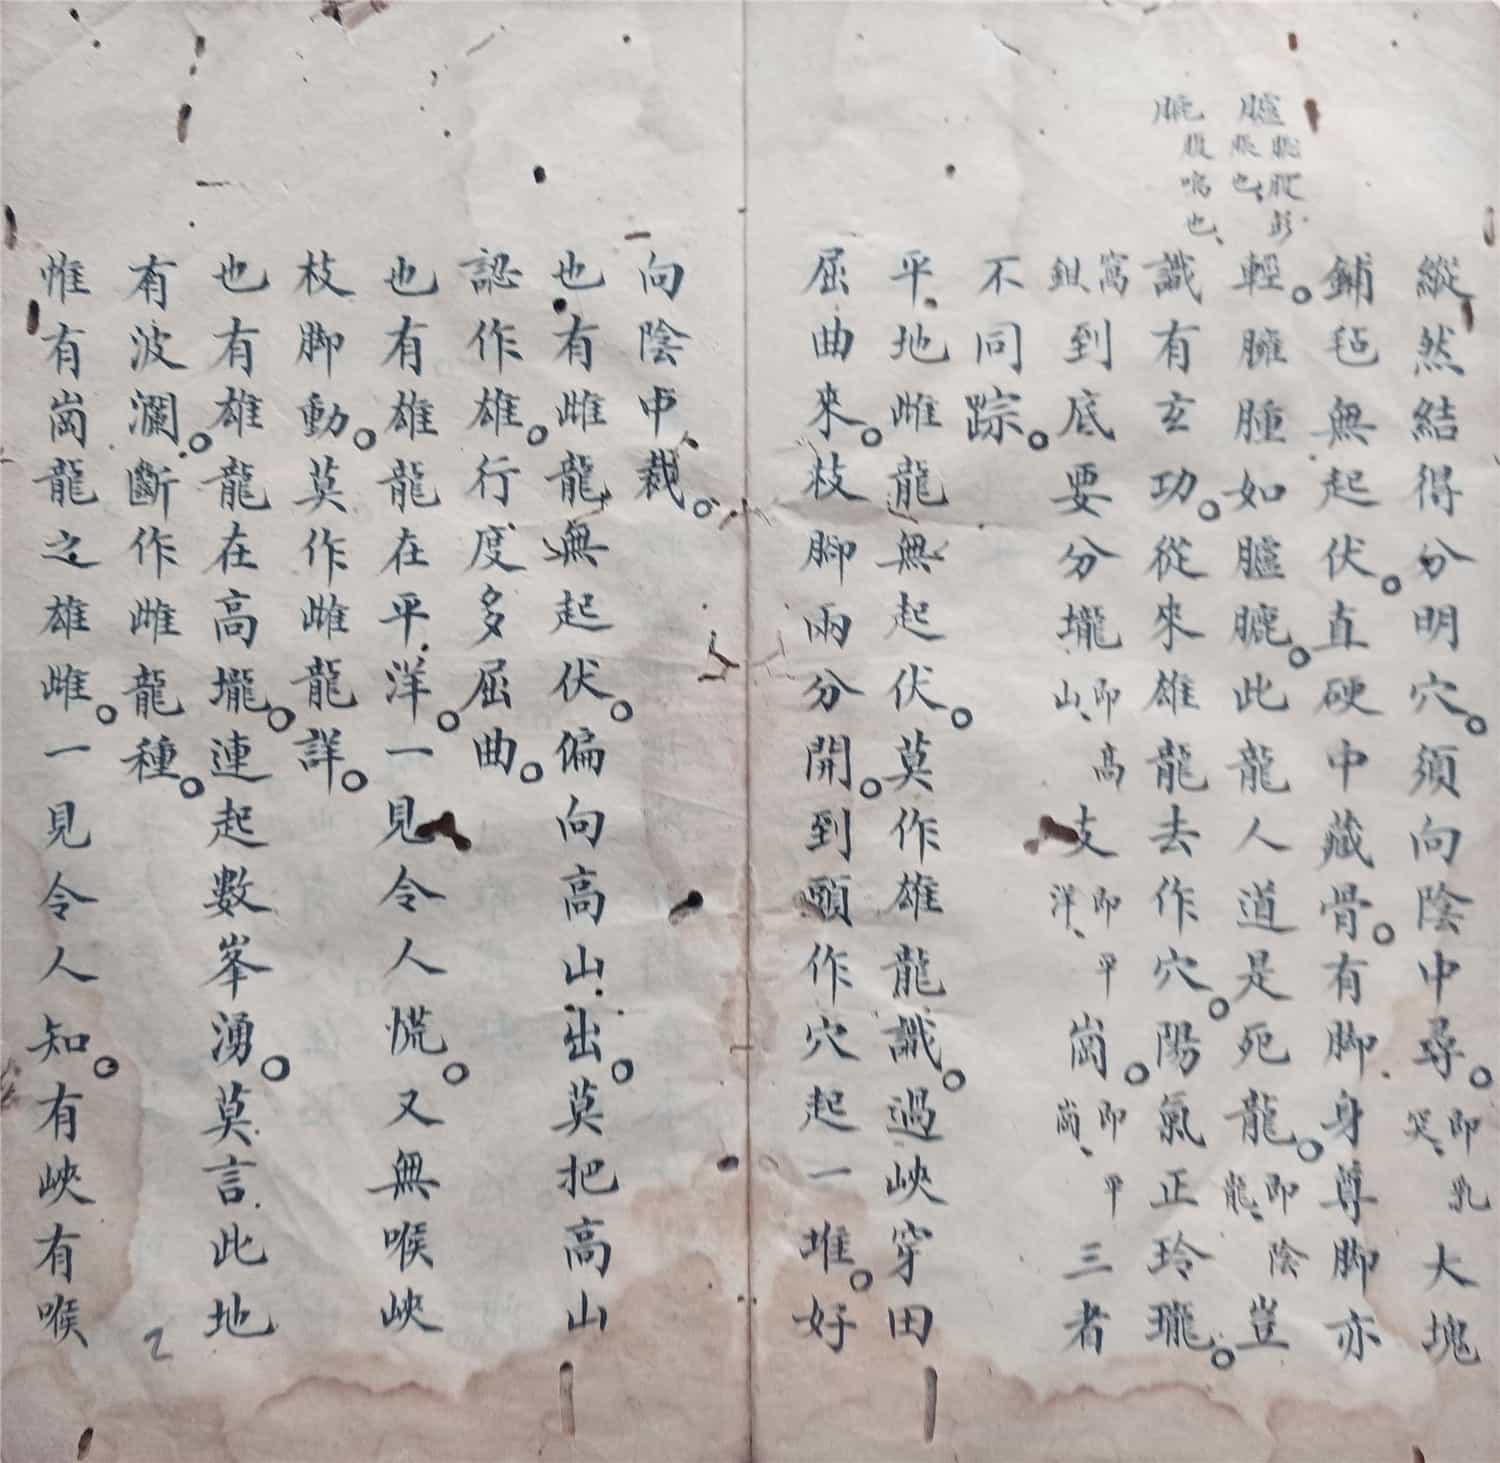 縱然結得分明穴。須向陰中尋。即乳突、大塊
鋪毡無起伏。直硬中藏骨。有脚身尊脚亦
輕。臃腫如臚腮。此龍人道是死龍。即陰龍、豈
識有玄功。從來雄龍去作穴。陽氣正玲瓏。
窩鉗到底要分壠即高山、支即平洋、崗。即平崗、三者
不同踪。
平地雌龍無起伏。莫作雄龍識。過峽穿田
屈曲來。枝脚兩分開。到頭作穴起一堆。好
向陰中裁。
也有雌龍無起伏。偏向高山出。莫把高山
認作雄。行度多屈曲。
也有雄龍在平洋。一見令人慌。又無喉峽
枝脚動。莫作雌龍詳。
也有雄龍在高壠。連起數峯湧。莫言此地
有波瀾。斷作雌龍種。
惟有崗龍之雄雌。一見令人知。有峽有喉
2